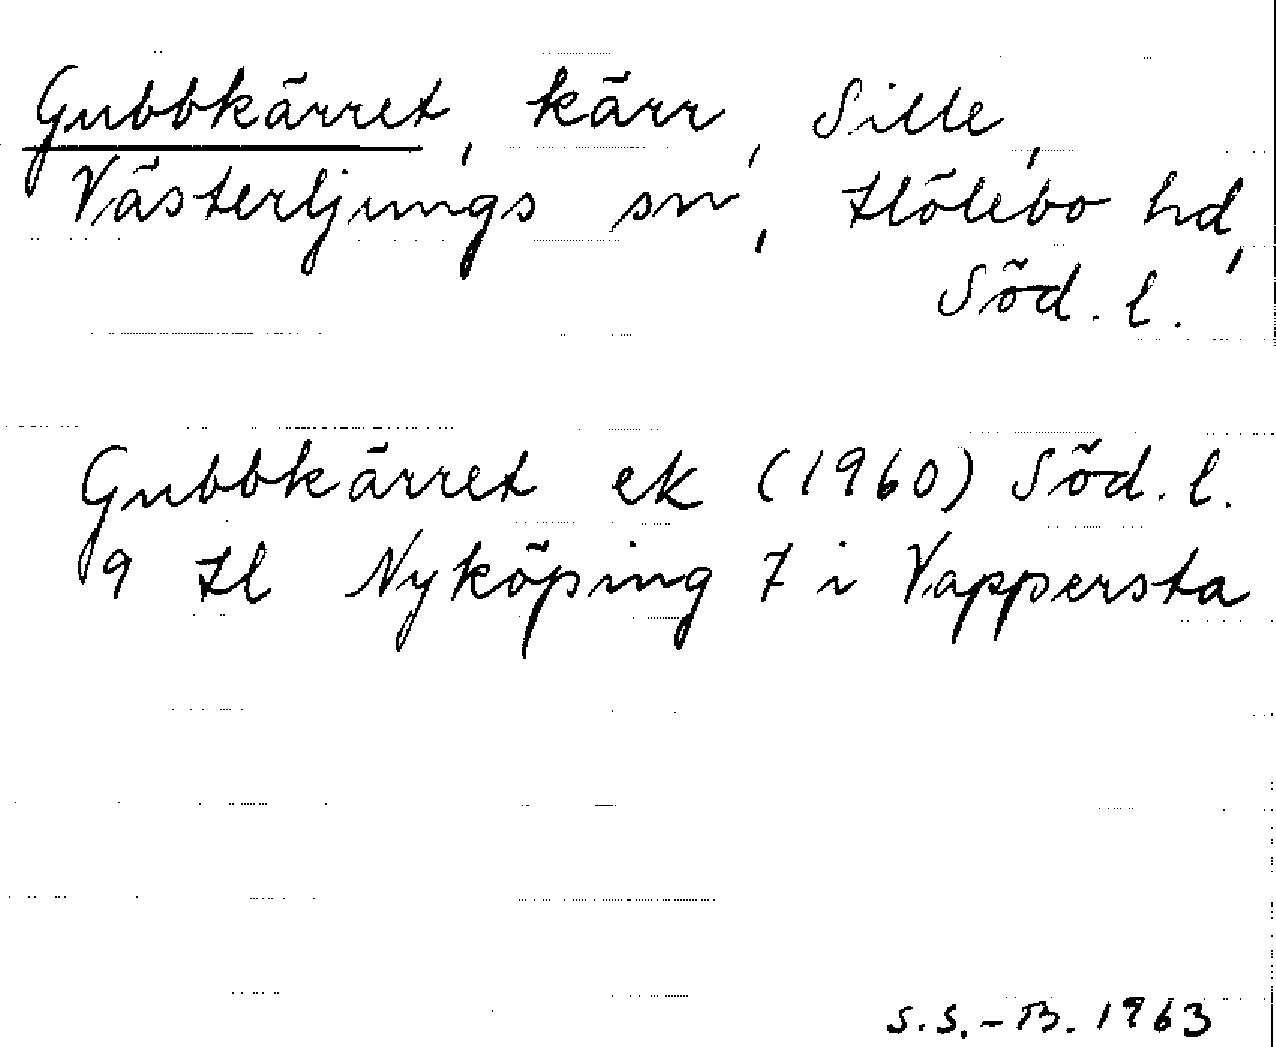 Gubbkärret, kärr, Sille,
Västerljungs sn, Hölebo hd,
Söd. l.
Gubbkärret ek (1960) Söd. l.
9 H l Nyköping 7 i Vappersta
S.S.-B. 1963